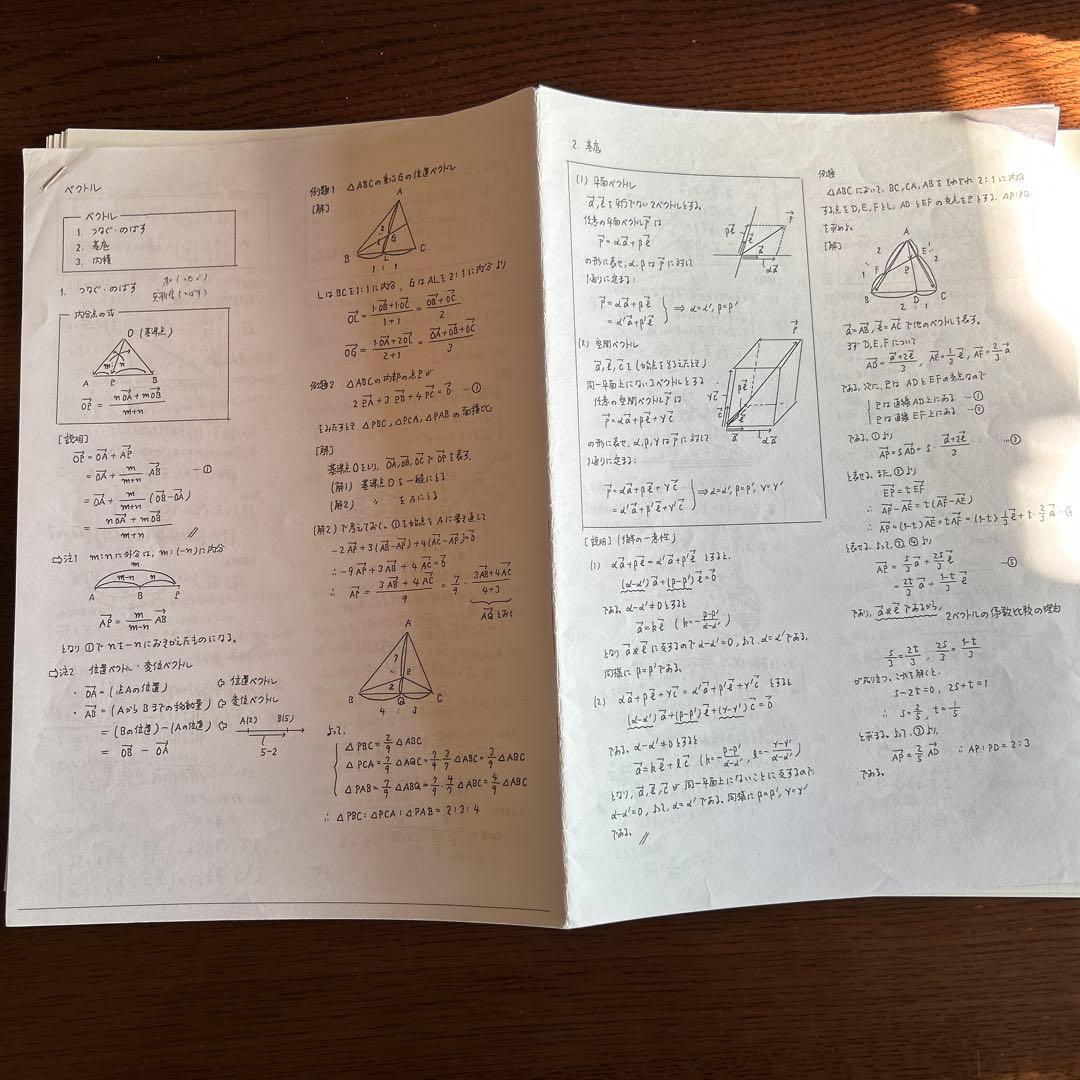 ベクトル
ベクトル
1. つなぐ・のばす
2. 基底
3. 内積
1. つなぐ・のばす
内分点の式
O (基準点)
m n
A P B
OP→ = (nOA→ + mOB→)/(m+n)
[説明]
OP→ = OA→ + AP→
= OA→ + m/(m+n) AB→ …①
= OA→ + m/(m+n) (OB→ − OA→)
= (nOA→ + mOB→)/(m+n) //
⇨注1 m:nに外分は, m:(−n)に内分
m
m−n n
A B P
AP→ = m/(m−n) AB→
となり①でnを−nにおきかえたものになる。
⇨注2 位置ベクトル・変位ベクトル
・OA→ = (点Aの位置) ⇦ 位置ベクトル
・AB→ = (AからBまでの移動量) ⇦ 変位ベクトル
= (Bの位置)−(Aの位置) ⇦ A(2) B(5)
= OB→ − OA→ 5−2
例題1 △ABCの重心Gの位置ベクトル
[解]
A
2
1 G
B L C
1 : 1
LはBCを1:1に内分, GはALを2:1に内分より
OL→ = (1・OB→+1・OC→)/(1+1) = (OB→+OC→)/2
OG→ = (1・OA→+2OL→)/(2+1) = (OA→+OB→+OC→)/3
例題2 △ABCの内部の点Pが
2PA→ + 3PB→ + 4PC→ = 0→ …①
をみたすとき △PBC, △PCA, △PABの面積比
[解]
基準点Oをとり, OA→, OB→, OC→でOP→を表す.
(解1) 基準点Oを一般にとる
(解2) 〃 をAにとる
(解2)で考えておく. ①を始点をAに書き直して
−2AP→ + 3(AB→−AP→) + 4(AC→−AP→) = 0→
∴ −9AP→ + 3AB→ + 4AC→ = 0→
∴ AP→ = (3AB→ + 4AC→)/9 = 7/9 · (3AB→+4AC→)/(4+3)
AQ→とおく
A
7
P
2
B Q C
4 : 3
よって,
△PBC = 2/9 △ABC
△PCA = 7/9 △AQC = 7/9 · 3/7 △ABC = 3/9 △ABC
△PAB = 7/9 △ABQ = 7/9 · 4/7 △ABC = 4/9 △ABC
∴ △PBC : △PCA : △PAB = 2:3:4
2. 基底
(1) 平面ベクトル
a→, b→を平行でない2ベクトルとする。
任意の平面ベクトルp→は
p→ = αa→ + βb→
の形に表せ, α, βはp→に対して
1通りに定まる:
p→ = αa→ + βb→
= α'a→ + β'b→ ⇒ α=α', β=β'
βb→ b→ a→ αa→ p→
(2) 空間ベクトル
a→, b→, c→ (始点をそろえたとき)
同一平面上にない3ベクトルとする
任意の空間ベクトルp→は
p→ = αa→ + βb→ + γc→
の形に表せ, α, β, γはp→に対して
1通りに定まる:
p→ = αa→ + βb→ + γc→
= α'a→ + β'b→ + γ'c→ ⇒ α=α', β=β', γ=γ'
p→ βb→ γc→ c→ b→ a→ αa→
[説明] (係数の一意性)
(1) αa→ + βb→ = α'a→ + β'b→ とすると.
(α−α')a→ + (β−β')b→ = 0→
である. α−α'≠0とすると
a→ = kb→ (k = −(β−β')/(α−α'))
となりa→∦b→に反するのでα−α'=0, よって, α=α'である.
同様にβ=β'である.
(2) αa→ + βb→ + γc→ = α'a→ + β'b→ + γ'c→ とすると
(α−α')a→ + (β−β')b→ + (γ−γ')c→ = 0→
である. α−α'≠0とすると
a→ = kb→ + lc→ (k = −(β−β')/(α−α'), l = −(γ−γ')/(α−α'))
となり, a→, b→, c→が同一平面上にないことに反するので
α−α'=0, よって, α=α'である. 同様にβ=β', γ=γ'
である. //
例題
△ABCにおいて, BC, CA, ABをそれぞれ2:1に内分
する点をD, E, Fとし, ADとEFの交点をPとする. AP:PD
を求めよ.
[解]
A
2 1
E
F P 2
1
B D C
2 : 1
a→=AB→, b→=AC→で他のベクトルを表す.
まずD, E, Fについて
AD→ = (a→+2b→)/3, AE→ = 1/3 b→, AF→ = 2/3 a→
である. 次に, PはADとEFの交点なので
Pは直線AD上にある …①
Pは直線EF上にある …②
である. ①より
AP→ = sAD→ = s · (a→+2b→)/3 …③
と表せる. また, ②より
EP→ = tEF→
∴ AP→−AE→ = t(AF→−AE→)
∴ AP→ = (1−t)AE→ + tAF→ = (1−t)1/3 b→ + t · 2/3 a→
と表せる. よって, ③, ④より
AP→ = s/3 a→ + 2s/3 b→
= 2t/3 a→ + (1−t)/3 b→ …⑤
であり, a→∦b→であるから, 2ベクトルの係数比較の理由
s/3 = 2t/3, 2s/3 = (1−t)/3
が成り立つ. これを解くと.
s−2t=0, 2s+t=1
∴ s=2/5, t=1/5
と求まる. よって, ③より,
AP→ = 2/5 AD→ ∴ AP:PD = 2:3
である.